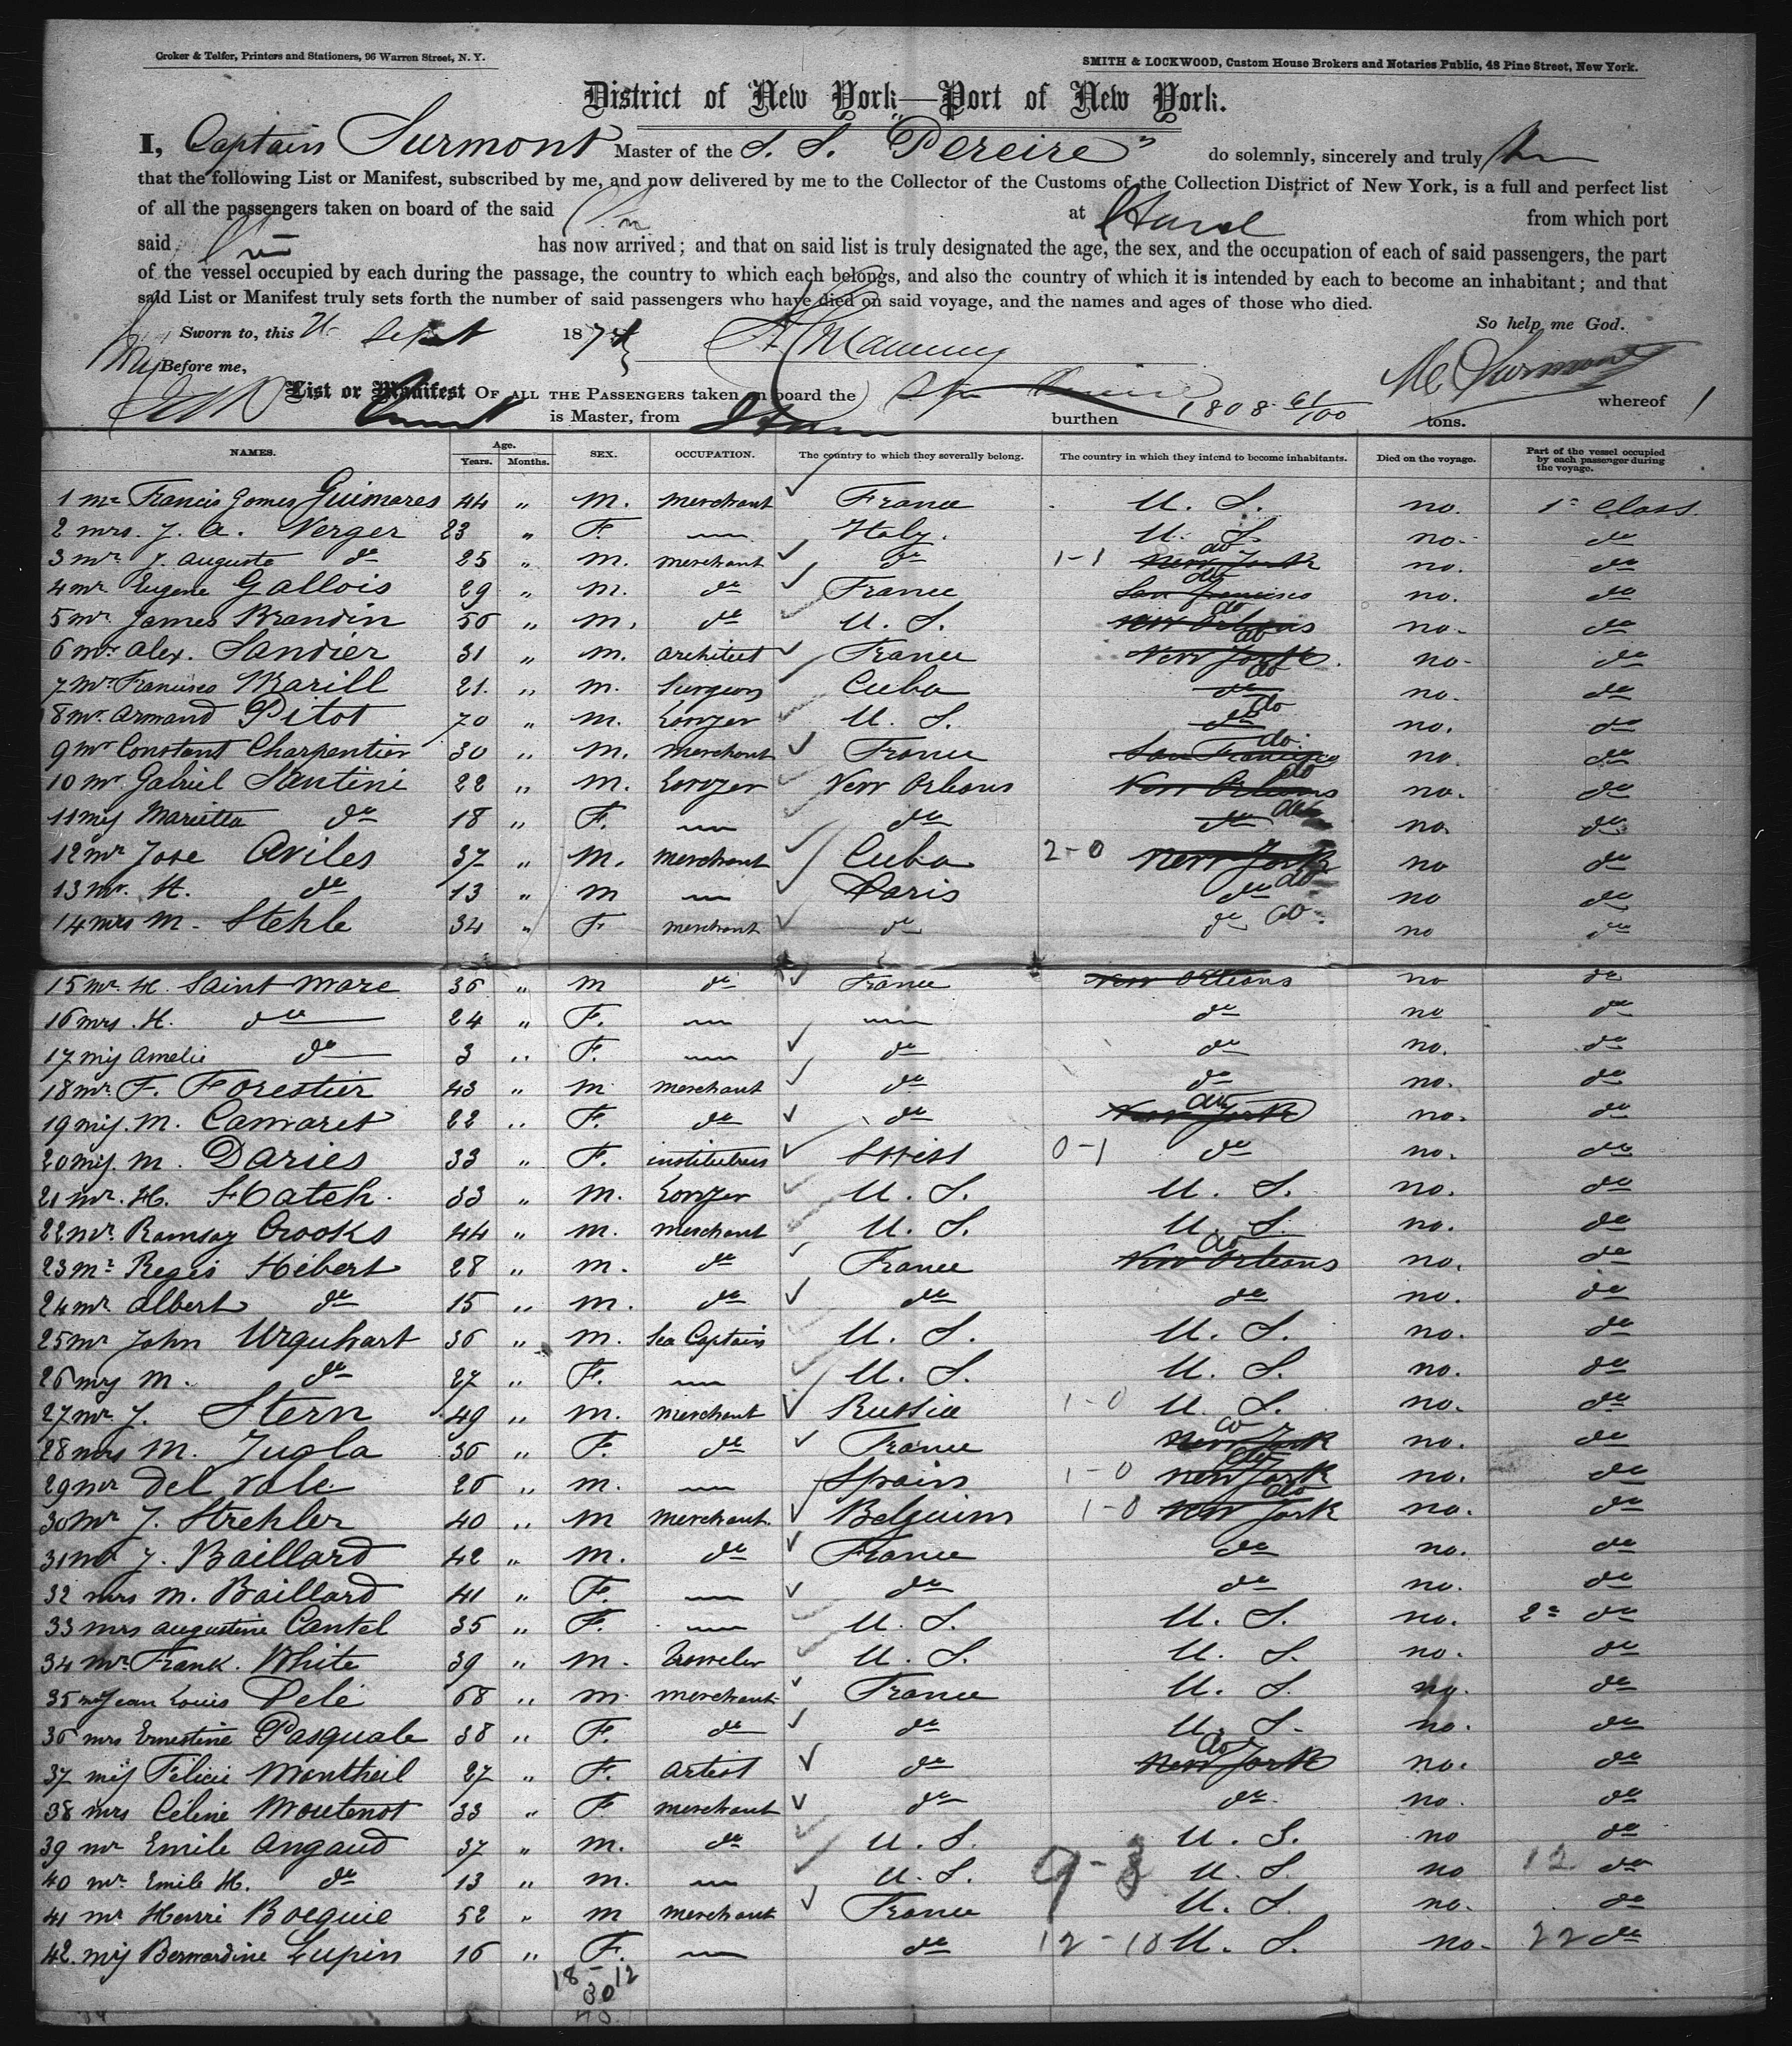 Croker & Telfer, Printers and Stationers, 96 Warren Street, N. Y.
SMITH & LOCKWOOD, Custom House Brokers and Notaries Public, 48 Pine Street, New York.
District of New York—Port of New York.
I, Captain Surmont Master of the S. S. "Pereire" do solemnly, sincerely and truly
that the following List or Manifest, subscribed by me, and now delivered by me to the Collector of the Customs of the Collection District of New York, is a full and perfect list
of all the passengers taken on board of the said at Havre from which port
said has now arrived; and that on said list is truly designated the age, the sex, and the occupation of each of said passengers, the part
of the vessel occupied by each during the passage, the country to which each belongs, and also the country of which it is intended by each to become an inhabitant; and that
said List or Manifest truly sets forth the number of said passengers who have died on said voyage, and the names and ages of those who died.
So help me God.
Sworn to, this Sept 1874
Before me, Surmont
List or Manifest OF ALL THE PASSENGERS taken on board the whereof
is Master, from burthen 1808 61/100 tons. 1
NAMES. Age. Years. Months. SEX. OCCUPATION. The country to which they severally belong. The country in which they intend to become inhabitants. Died on the voyage. Part of the vessel occupied by each passenger during the voyage.
1 mr Francis Gomes Guimares 44 " M. merchant France U. S. no. 1st Class.
2 mrs. J. A. Verger 23 " F. — Italy. U. S. no. do
3 mr J. Auguste do 25 " M. merchant do 1-1 New York do no. do
4 mr Eugene Gallois 29 " M. do France San Francisco do no. do
5 mr James Brandin 56 " M. do U. S. New Orleans do no. do
6 mr Alex. Sandier 31 " M. Architect France New York do no. do
7 mr Francisco Marill 21. " M. Surgeon Cuba do do no. do
8 mr Armand Pitot 70 " M. Lowyer U. S. do do no. do
9 mr Constant Charpentier 30 " M. Merchant France San Francisco do no. do
10 mr Gabriel Santini 22 " M. Lowyer New Orleans New Orleans do no. do
11 mis Marietta do 18 " F. — do do do no. do
12 mr Jose Aviles 37 " M. merchant Cuba 2-0 New York no do
13 mr. H. do 13 " m — Paris do do no do
14 mrs M. Stehle 34 " F merchant do do do. no do
15 mr. H. Saint Marc 36 " m do France New Orleans no do
16 mrs. H. do 24 " F. — — do no do
17 mis Amelie do 3 " F. — do do no. do
18 mr. F. Forestier 43 " m merchant do do no. do
19 mis. M. Camaret 22 " F. do do New York do no. do
20 mis. M. Daries 33 " F. institutrees Swiss 0-1 do no. do
21 mr. H. Hatch. 33 " M. Lowyer U. S. U. S. no. do
22 mr. Ramsay Crooks 44 " M. Merchant U. S. U. S. no. do
23 mr Regis Hébert 28 " M. do France New Orleans do no. do
24 mr Albert do 15 " M. do do do no. do
25 mr John Urquhart 36 " M. Sea Captain U. S. U. S. no. do
26 mrs M. do 27 " F. — U. S. U. S. no. do
27 mr J. Stern 49 " M. merchant Russia 1-0 U. S. no. do
28 mrs M. Jugla 36 " F. do France New York do no. do
29 mr Del Vale 26 " M. — Spain 1-0 New York do no. do
30 mr J. Strehler 40 " M merchant Belguim 1-0 New York do no. do
31 mr J. Baillard 42 " M. do France do no. do
32 mrs M. Baillard 41 " F. — do do no. do
33 mrs Augustine Cantel 35 " F. — U. S. U. S. no. 2e do
34 mr Frank. White 39 " M. Traveler U. S. U. S. no. do
35 mr Jean Louis Pelé 68 " M. merchant France U. S. no. do
36 mrs Ernestine Pasquale 38 " F. do do U. S. no. do
37 mis Félicie Montheil 27 " F. Artist do New York do no. do
38 mrs Céline Moutenot 33 " F. merchant do do no. do
39 mr Emile Angaud 37 " M. do U. S. U. S. no do
40 mr. Emile H. do 13 " M. — U. S. 9-3 U. S. no 12 do
41 mr Henri Bocquie 52 " M merchant France U. S. no. do
42. mis Bernardine Lupin 16 " F. — do 12-10 U. S. no. 22 do
18-12
30